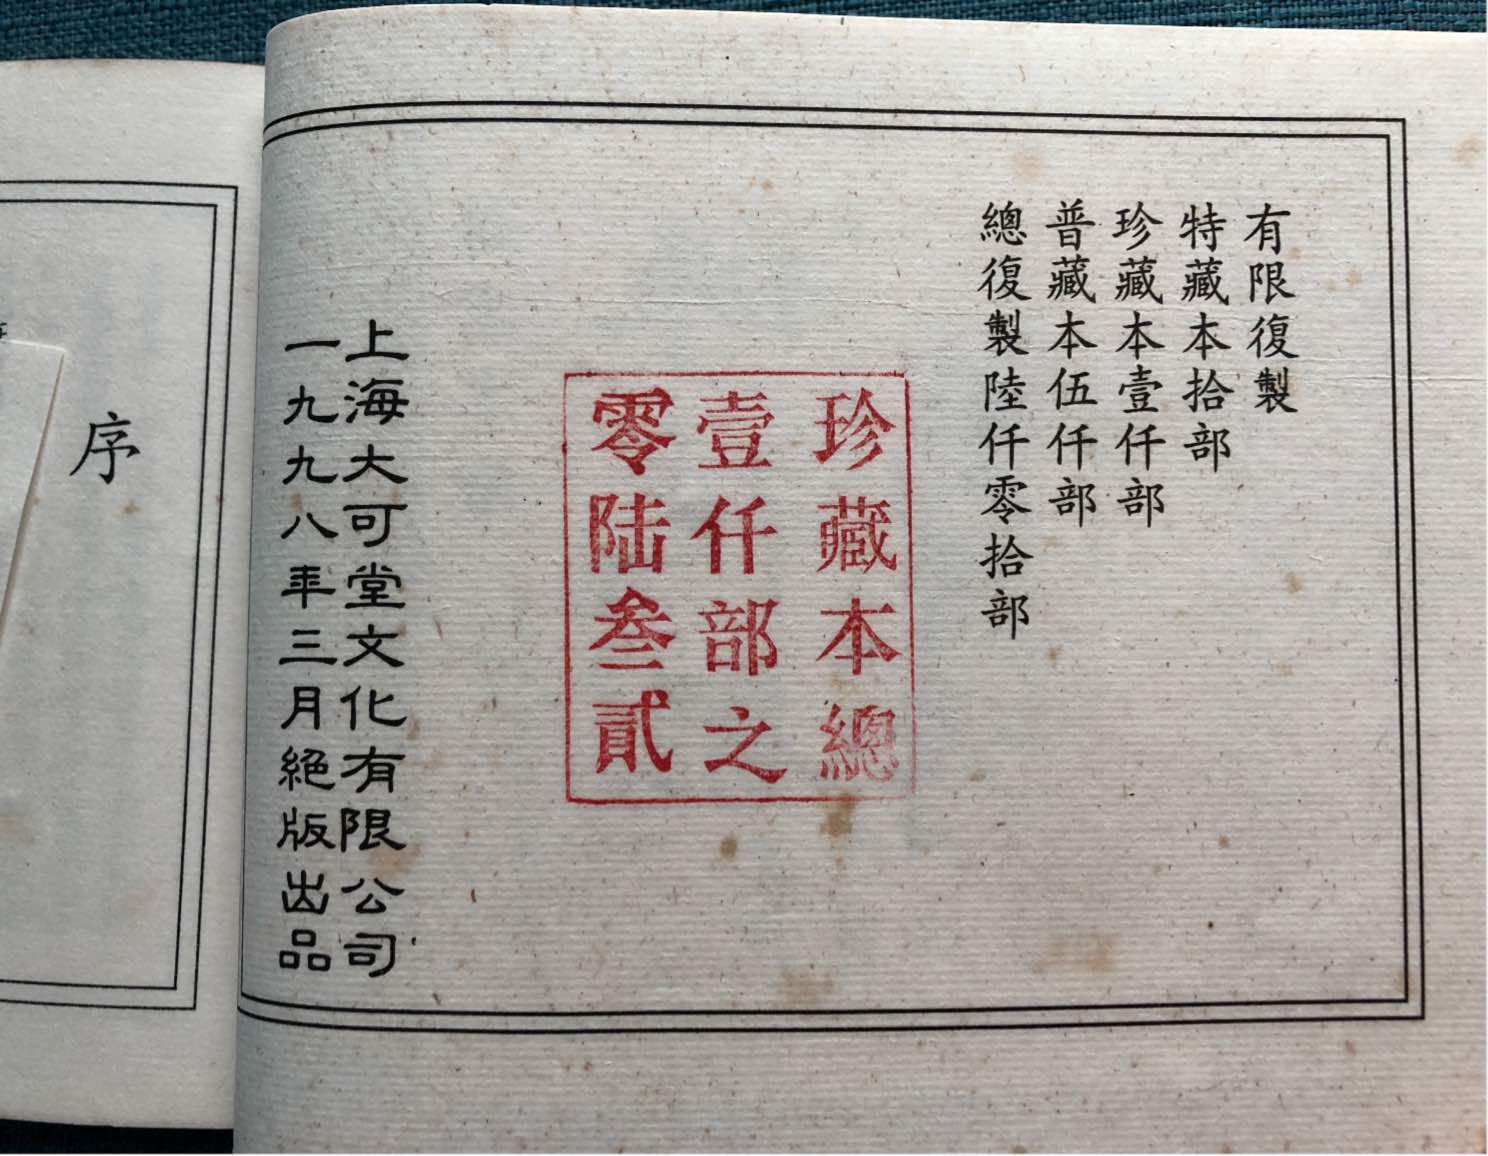 有限復製
特藏本拾部
珍藏本壹仟部
普藏本伍仟部
總復製陸仟零拾部
珍藏本總
壹仟部之
零陆叁貳
上海大可堂文化有限公司
一九九八年三月絕版出品
序